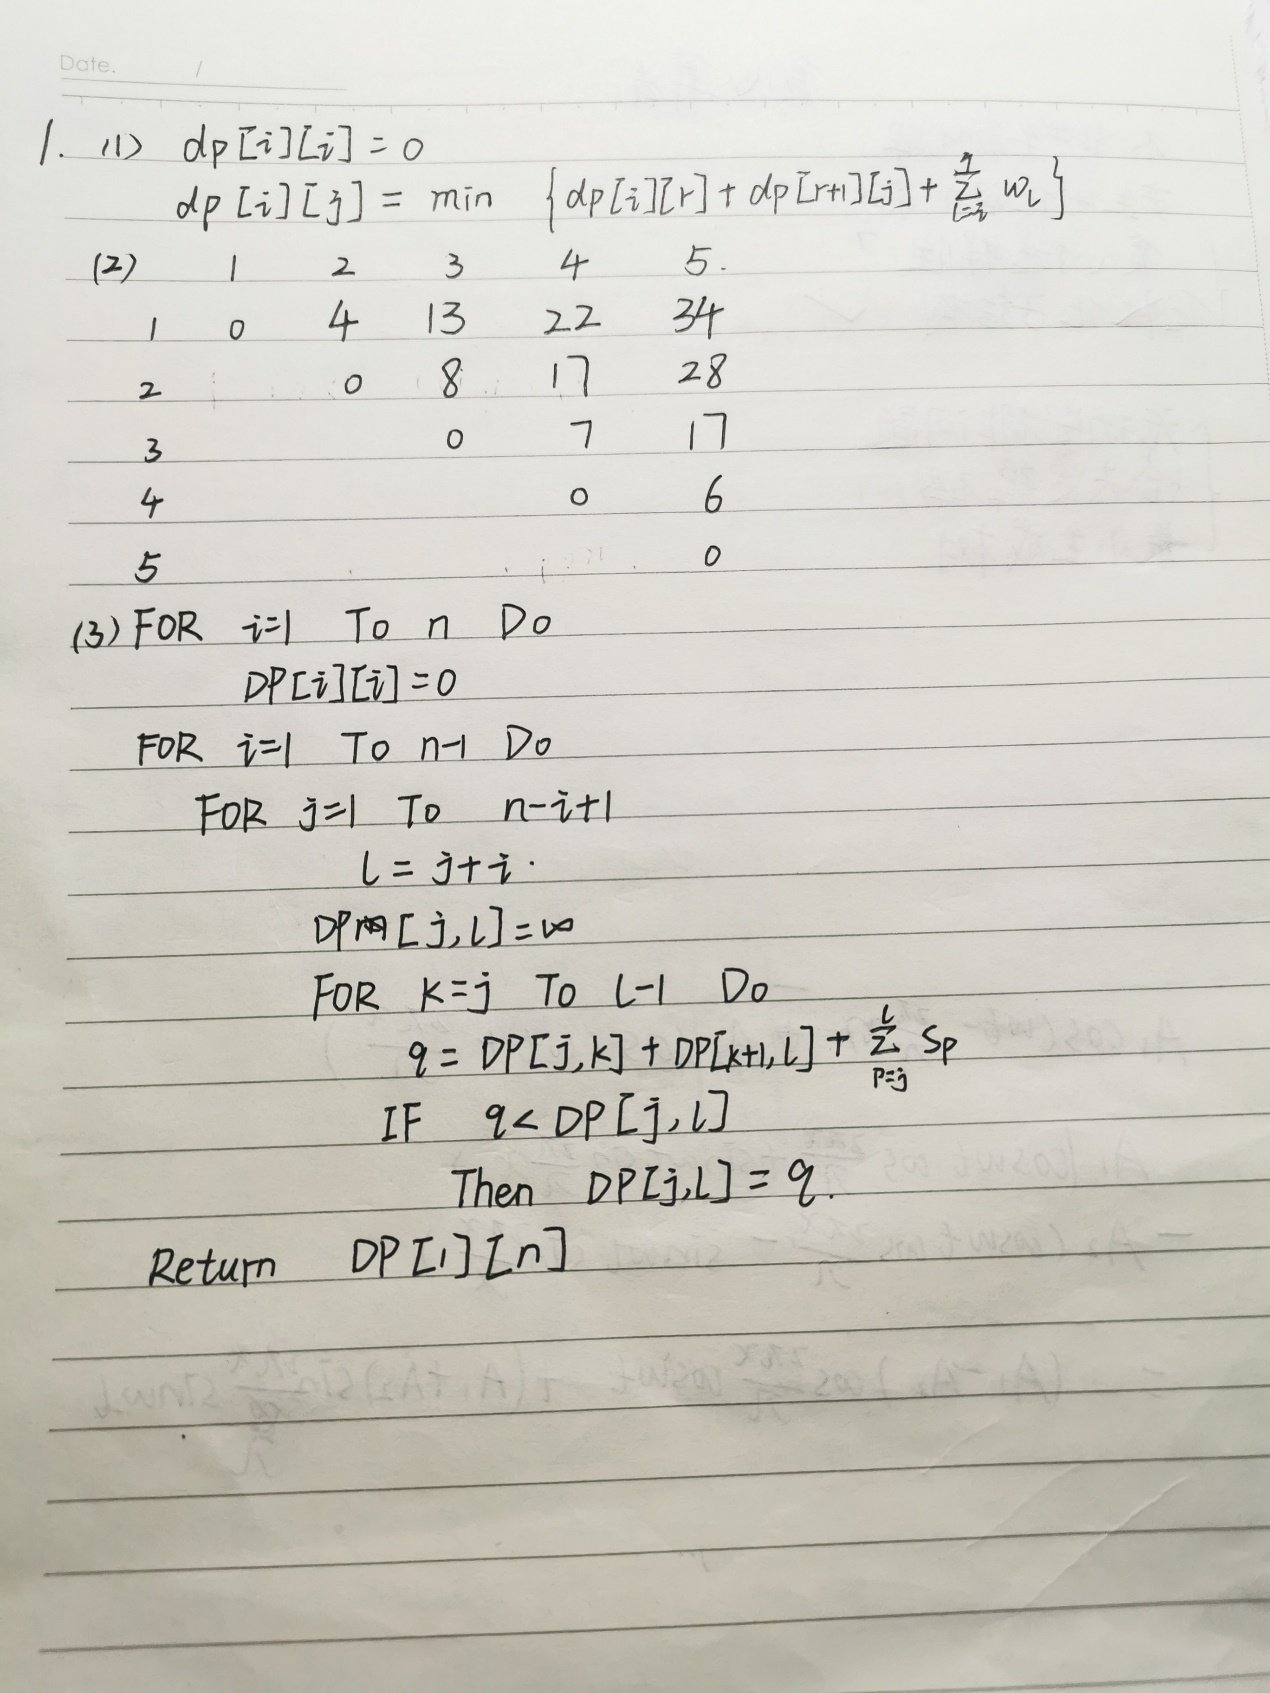 Date. /
1. (1) dp[i][i]=0
dp[i][j] = min {dp[i][r] + dp[r+1][j] + \sum_{l=i}^{j} w_l}
(2) 1 2 3 4 5.
1 0 4 13 22 34
2 0 8 17 28
3 0 7 17
4 0 6
5 0
(3) FOR i=1 To n Do
DP[i][i]=0
FOR i=1 To n-1 Do
FOR j=1 To n-i+1
l = j+i.
DP[j,l]=∞
FOR k=j To l-1 Do
q = DP[j,k] + DP[k+1,l] + \sum_{p=j}^{l} Sp
IF q< DP[j,l]
Then DP[j,l] = q.
Return DP[1][n]